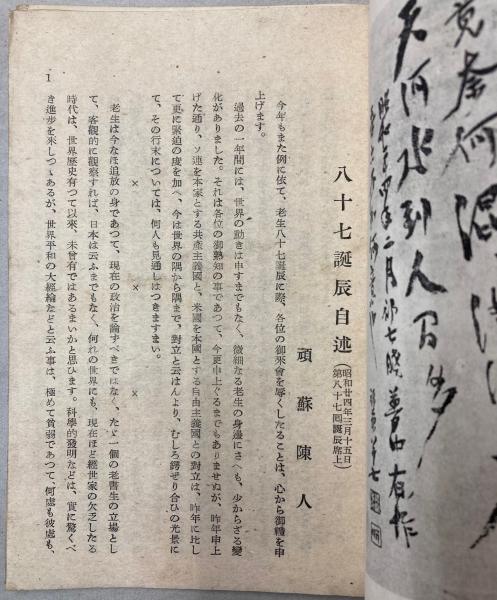 竟奈何
河水到人間
昭和二十四年二月初七曉夢中有作
八十七誕辰自述（昭和廿四年三月十五日
第八十七囘誕辰席上）
頑蘇陳人
今年もまた例に依て、老生八十七誕辰に際、各位の御來會を辱くしたることは、心から御禮を申
上げます。
過去の一年間には、世界の動きは申すまでもなく、微細なる老生の身邊にさへも、少からざる變
化がありました。それは各位の御熟知の事であつて、今更申上ぐるまでもありませぬが、昨年申上
げた通り、ソ連を本家とする共產主義國と、米國を本國とする自由主義國との對立は、昨年に比し
て更に緊迫の度を加へ、今は世界の隅から隅まで、對立と云はんより、むしろ鍔ぜり合ひの光景に
て、その行末については、何人も見通しはつきますまい。
× × ×
老生は今なほ追放の身であつて、現在の政治を論ずべきではなく、たゞ一個の老書生の立場とし
て、客觀的に觀察すれば、日本は云ふまでもなく、何れの世界にも、現在ほど經世家の欠乏したる
時代は、世界歷史有つて以來、未曾有ではあるまいかと思ひます。科學的發明などは、實に驚くべ
き進步を來しつゝあるが、世界平和の大經綸などと云ふ事は、極めて貧弱であつて、何處も彼處も、
1